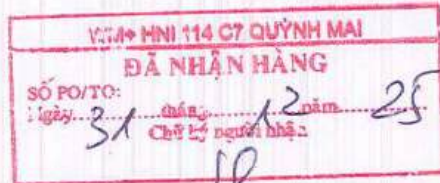 WM+ HNI 114 C7 QUỲNH MAI
ĐÃ NHẬN HÀNG
SỐ PO/TO:
Ngày 31 tháng 12 năm 25
Chữ ký người nhận